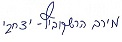 מירב הרשקוביץ - יצחקי